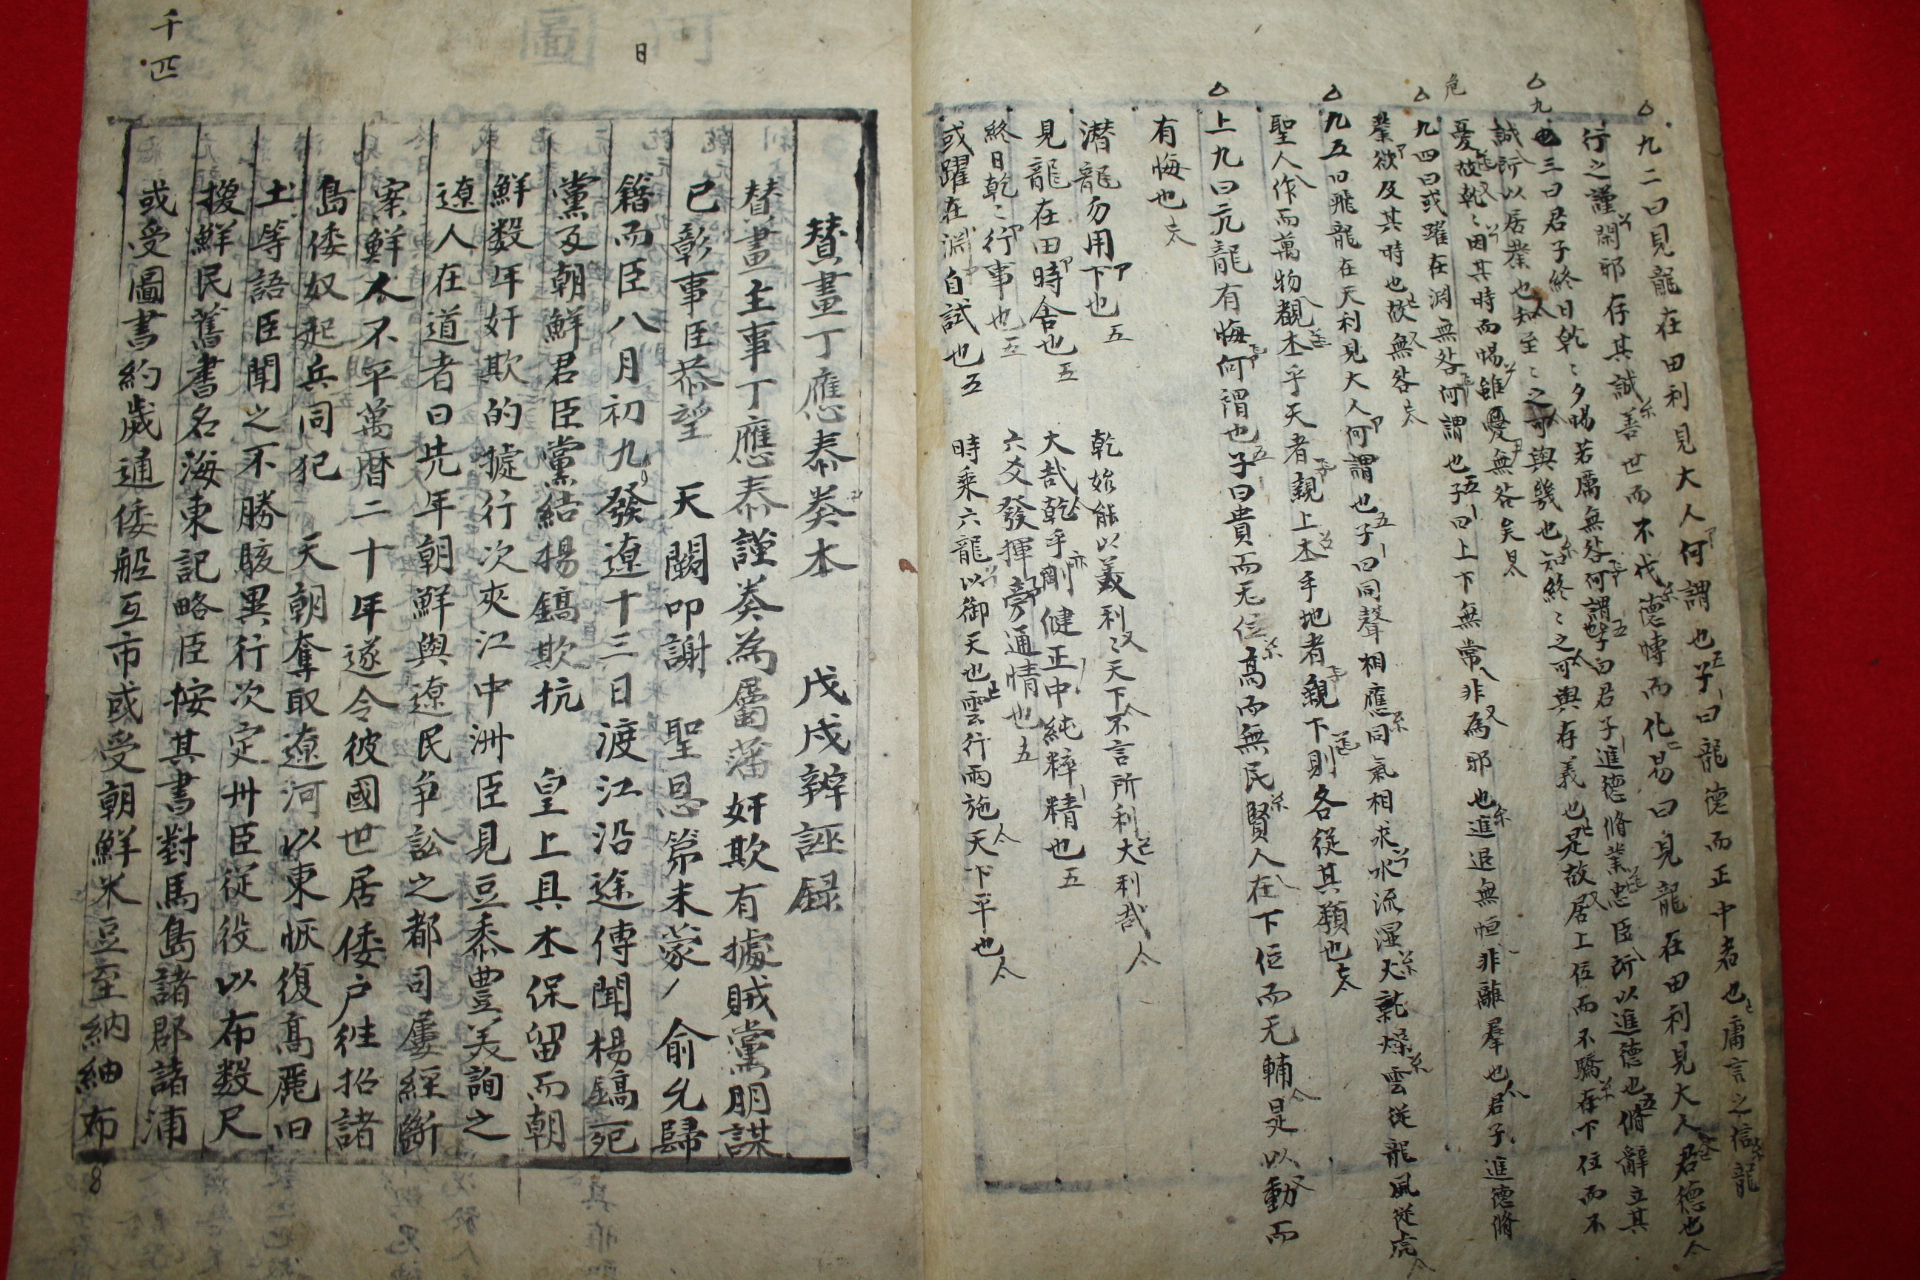 九二曰見龍在田利見大人何謂也子曰龍德而正中者也庸言之信龍
行之謹閑邪存其誠善世而不伐德愽而化易曰見龍在田利見大人君德也
九三曰君子終日乾〻夕惕若厲無咎何謂也子曰君子進德脩業忠臣所以進德也脩辭立其
誠所以居業也知至〻之可與幾也知終〻之可與存義也是故居上位而不驕在下位而不
憂故乾〻因其時而惕雖憂無咎矣
九四曰或躍在淵無咎何謂也子曰上下無常非為邪也進退無恒非離羣也君子進德脩
業欲及其時也故無咎
九五曰飛龍在天利見大人何謂也子曰同聲相應同氣相求水流湿火就燥雲從龍風從虎
聖人作而萬物覩本乎天者親上本乎地者親下則各從其類也
上九曰亢龍有悔何謂也子曰貴而无位高而無民賢人在下位而无輔是以動而
有悔也
潜龍勿用下也
見龍在田時舍也
終日乾〻行事也
或躍在淵自試也
乾始能以義利〻天下不言所利大利哉
大哉乾乎剛健正中純粹精也
六爻發揮旁通情也
時乘六龍以御天也雲行雨施天下平也
日
千
匹
賛畫丁應泰奏本 戊戌辨誣録
賛畫主事丁應泰謹奏為屬藩奸欺有據賊黨朋謀
已彰事臣恭望 天闕叩謝 聖恩第未蒙 俞允歸
籍而臣八月初九發遼十三日渡江沿途傳聞楊鎬死
黨及朝鮮君臣黨結楊鎬欺抗 皇上具本保留而朝
鮮数年奸欺的㨿行次夾江中洲臣見豆黍豊美詢之
遼人在道者曰先年朝鮮與遼民争訟之都司屢經斷
案鮮人不平萬暦二十年遂令彼國世居倭戶徃招諸
島倭奴起兵同犯 天朝奪取遼河以東恢復高麗旧
土等語臣聞之不勝駭異行次定州臣従役以布数尺
換鮮民舊書名海東記略臣按其書對馬島諸郡諸浦
或受圖書約歲通倭船互市或受朝鮮米豆至納紬布
8